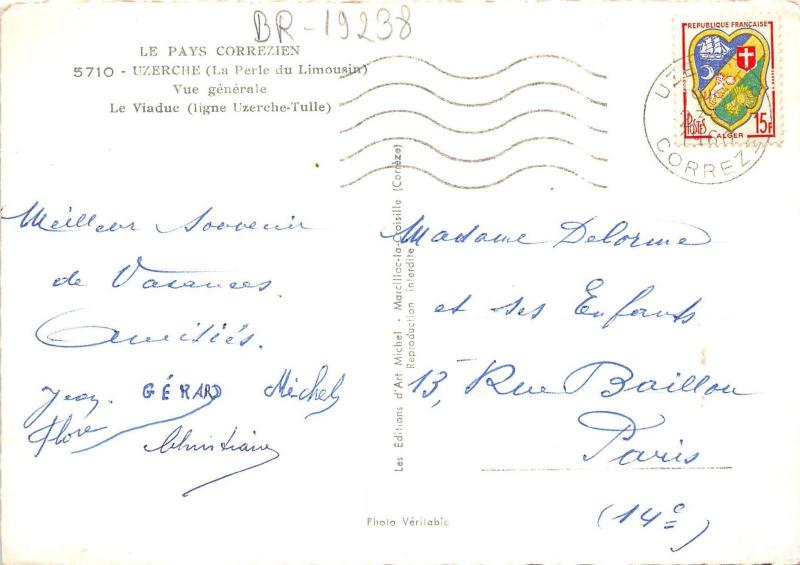 BR-19238
LE PAYS CORREZIEN
5710 - UZERCHE (La Perle du Limousin)
Vue générale
Le Viaduc (ligne Uzerche-Tulle)
REPUBLIQUE FRANÇAISE
POSTES
15F
ALGER
UZE
CORREZE
Meilleur Souvenir
de Vacances
Amitiés.
Jean. GÉRARD Michel
Flore
Christiane
Les Editions d'Art Michel - Marcillac-la-Croisille (Corrèze)
Reproduction interdite
Photo Véritable
Madame Delorme
et ses Enfants
13, Rue Baillou
Paris
(14e)